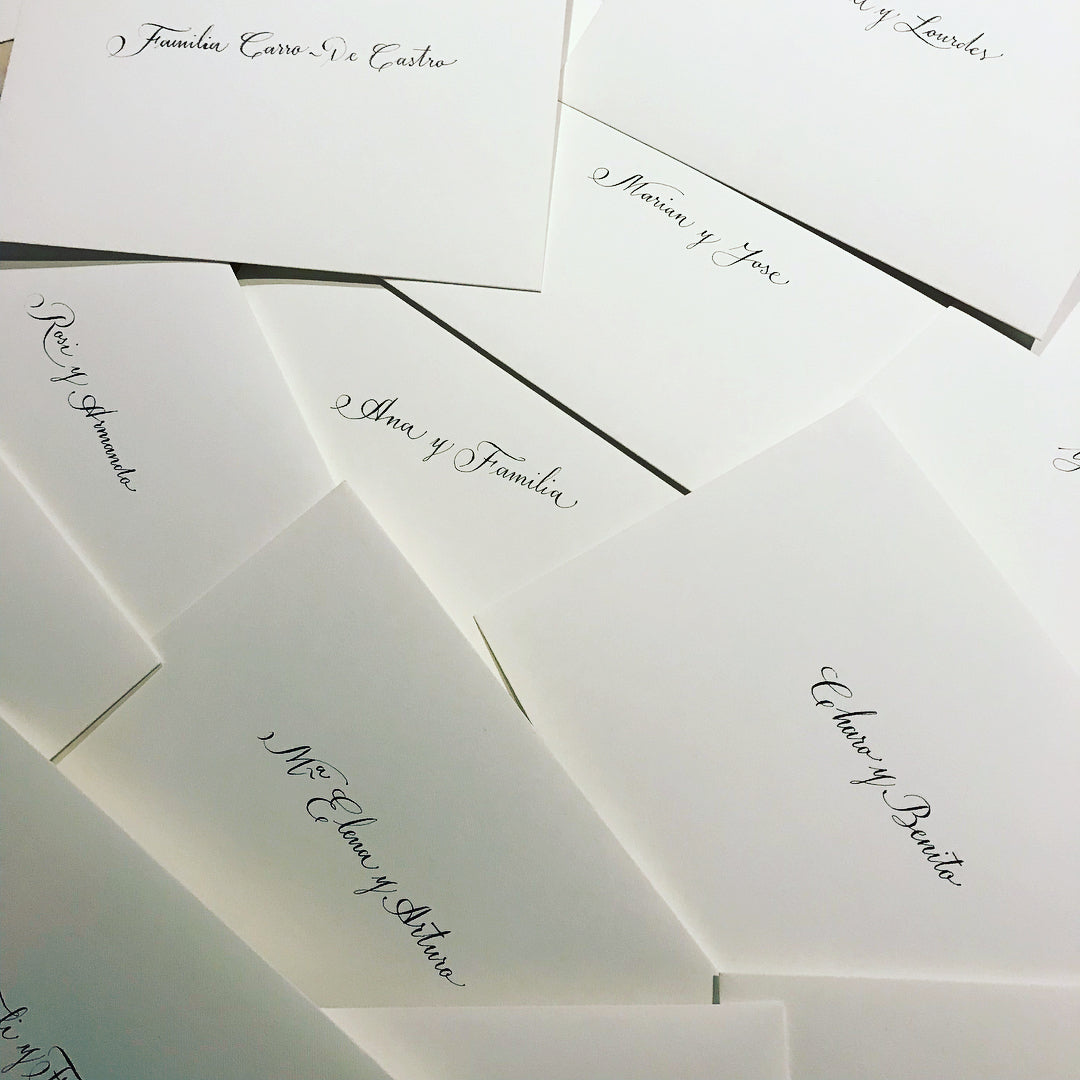 Familia Carro-De Castro
y Lourdes
Marian y Jose
Rosi y Armando
Ana y Familia
y
Charo y Benito
Mª Elena y Arturo
y